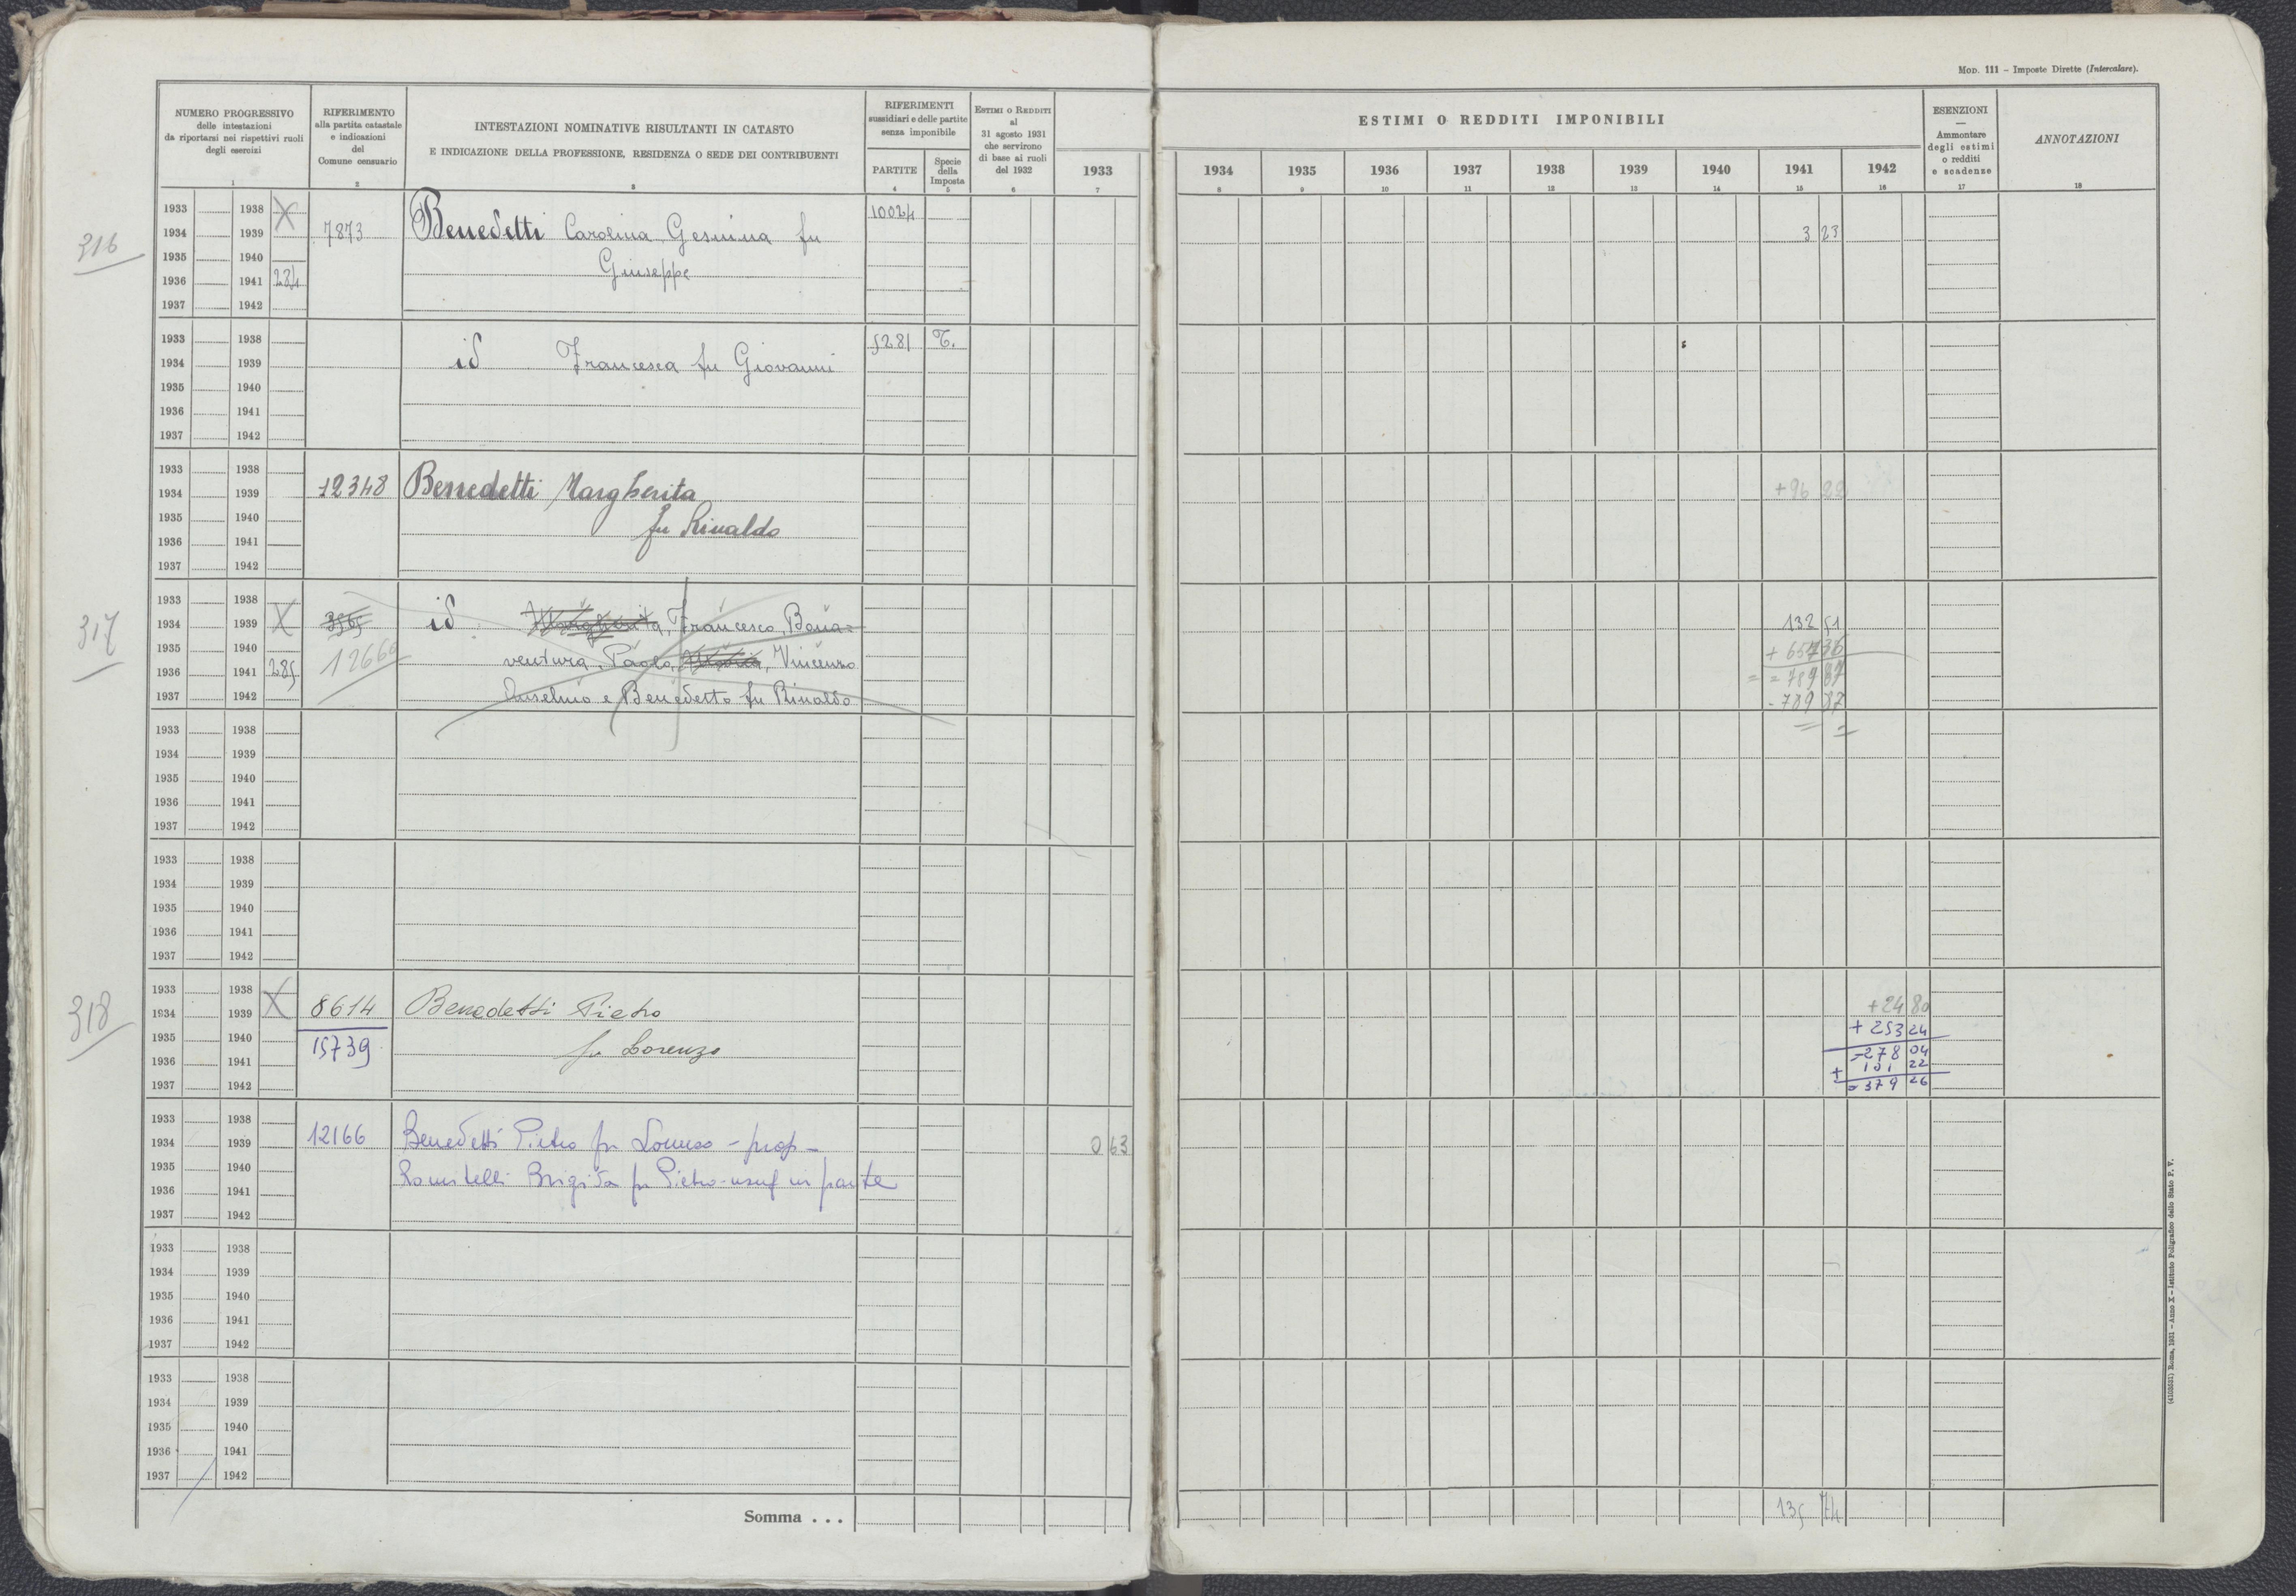 MOD. 111 – Imposte Dirette (Intercalare).
NUMERO PROGRESSIVO
delle intestazioni
da riportarsi nei rispettivi ruoli
degli esercizi
RIFERIMENTO
alla partita catastale
e indicazioni
del
Comune censuario
INTESTAZIONI NOMINATIVE RISULTANTI IN CATASTO
E INDICAZIONE DELLA PROFESSIONE, RESIDENZA O SEDE DEI CONTRIBUENTI
RIFERIMENTI
sussidiari e delle partite
senza imponibile
PARTITE
Specie
della
Imposta
ESTIMI O REDDITI
al
31 agosto 1931
che servirono
di base ai ruoli
del 1932
ESTIMI O REDDITI IMPONIBILI
1933 1934 1935 1936 1937 1938 1939 1940 1941 1942
ESENZIONI
—
Ammontare
degli estimi
o redditi
e scadenze
ANNOTAZIONI
1 2 3 4 5 6 7 8 9 10 11 12 13 14 15 16 17 18
1933 1938 X 10024
316 1934 1939 7873 Benedetti Carolina Gesuina fu 3 23
1935 1940 Giuseppe
1936 1941 284
1937 1942
1933 1938 5281 T.
1934 1939 id Francesca fu Giovanni
1935 1940
1936 1941
1937 1942
1933 1938
1934 1939 12348 Benedetti Margherita +96 22
1935 1940 fu Rinaldo
1936 1941
1937 1942
1933 1938
317 1934 1939 X id Margherita, Francesco, Bona= 132 51
1935 1940 12666 ventura, Paolo, Vincenzo + 657 36
1936 1941 285 = = 789 87
1937 1942 Anselmo e Benedetto fu Rinaldo - 789 87
1933 1938
1934 1939
1935 1940
1936 1941
1937 1942
1933 1938
1934 1939
1935 1940
1936 1941
1937 1942
1933 1938
318 1934 1939 X 8614 Benedetti Pietro +24 80
1935 1940 15739 fu Lorenzo + 253 24
1936 1941 =278 04
+ 101 22
1937 1942 = 379 26
1933 1938
1934 1939 12166 Benedetti Pietro fu Lorenzo – prop – 0 63
1935 1940 Romitelli Brigida fu Pietro – usuf in parte
1936 1941
1937 1942
1933 1938
1934 1939
1935 1940
1936 1941
1937 1942
1933 1938
1934 1939
1935 1940
1936 1941
1937 1942
Somma . . . 135 74
(4103531) Roma, 1931 – Anno X – Istituto Poligrafico dello Stato P. V.